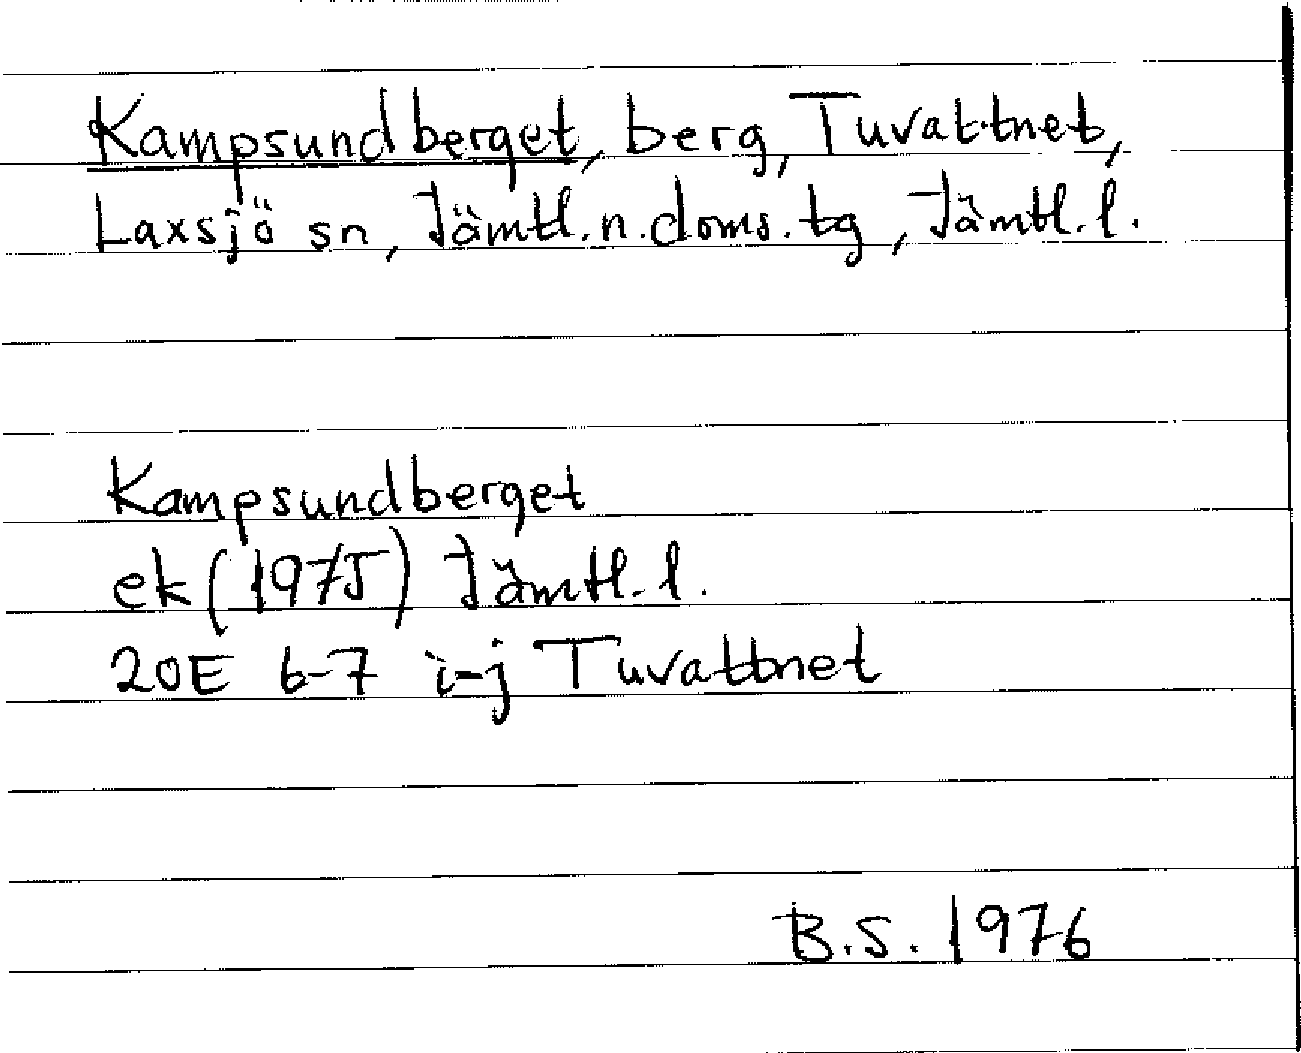 Kampsundberget, berg, Tuvattnet,
Laxsjö sn, Jämtl.n.doms.tg, Jämtl.l.
Kampsundberget
ek (1975) Jämtl.l.
20E 6-7 i-j Tuvattnet
B.S. 1976